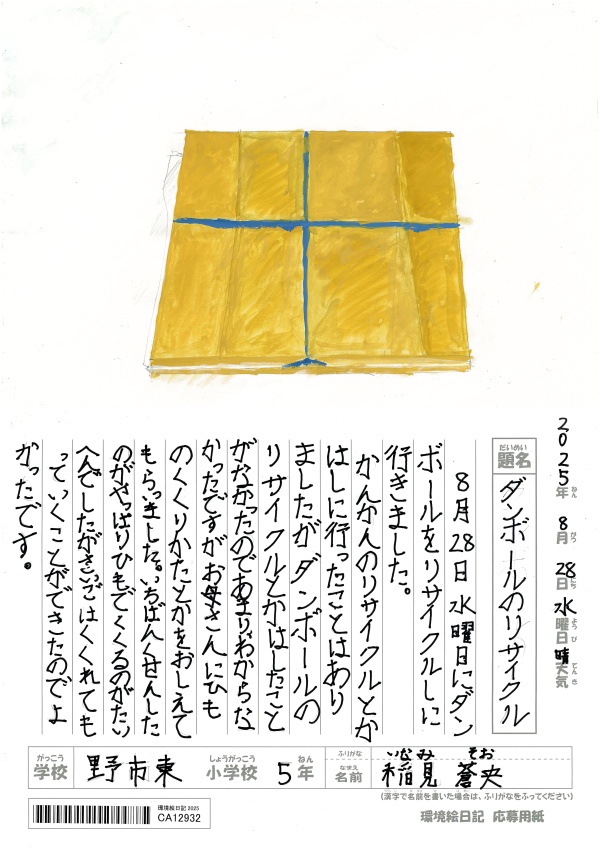 2025年ねん 8月がつ 28日にち 水曜日ようび 晴天気てんき
だいめい
題名
ダンボールのリサイクル
8月28日水曜日にダン
ボールをリサイクルしに
行きました。
かんかんのリサイクルとか
はしに行ったことはあり
ましたがダンボールの
リサイクルとかはしたこと
がなかったのであまりわからな
かったですがお母さんにひも
のくくりかたとかをおしえて
もらいました。いちばんくせんした
のがやっぱりひもでくくるのがたい
へんでしたがさいごはくくれても
っていくことができたのでよ
かったです。
がっこう
学校
野市東
しょうがっこう
小学校
5
ねん
年
ふりがな
いなみ そお
なまえ
名前
稲見 蒼央
(漢字で名前を書いた場合は、ふりがなをふってください)
環境絵日記 2025
CA12932
環境絵日記 応募用紙